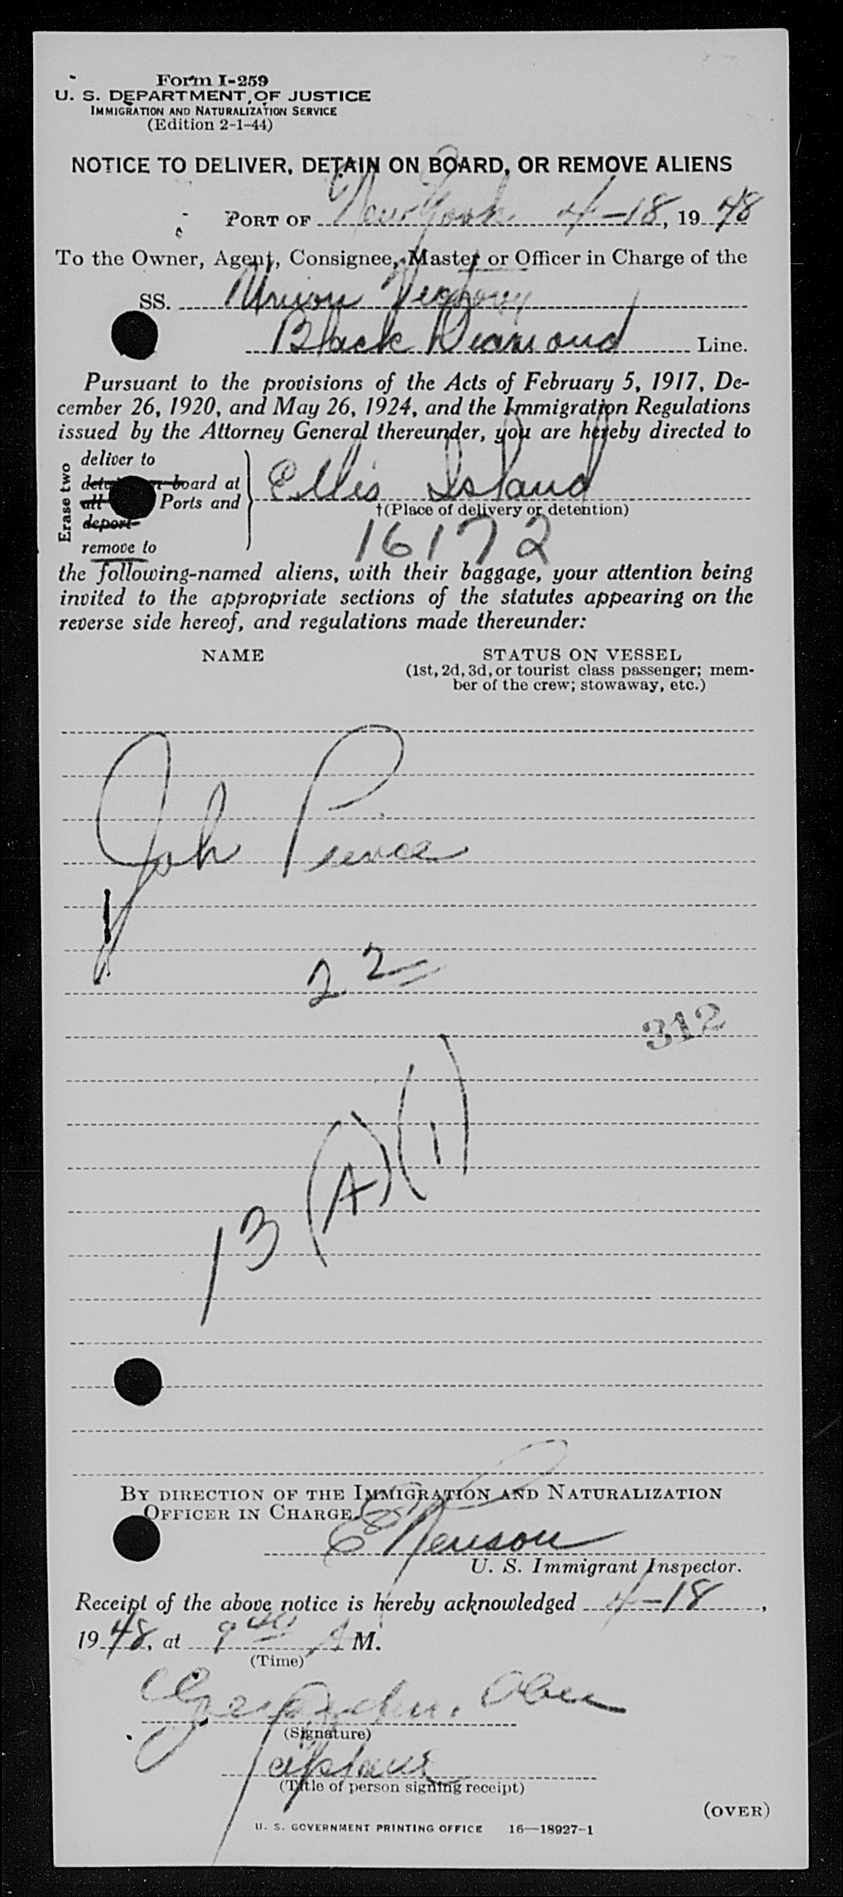 Form I-259
U. S. DEPARTMENT OF JUSTICE
IMMIGRATION AND NATURALIZATION SERVICE
(Edition 2-1-44)
NOTICE TO DELIVER, DETAIN ON BOARD, OR REMOVE ALIENS
PORT OF New York 4-18, 1948
To the Owner, Agent, Consignee, Master or Officer in Charge of the
SS. Union Victory
Black Diamond Line.
Pursuant to the provisions of the Acts of February 5, 1917, De-
cember 26, 1920, and May 26, 1924, and the Immigration Regulations
issued by the Attorney General thereunder, you are hereby directed to
Erase two
deliver to
board at
all Ports and
deport
remove to
Ellis Island
†(Place of delivery or detention)
16172
the following-named aliens, with their baggage, your attention being
invited to the appropriate sections of the statutes appearing on the
reverse side hereof, and regulations made thereunder:
NAME STATUS ON VESSEL
(1st, 2d, 3d, or tourist class passenger; mem-
ber of the crew; stowaway, etc.)
Joh Pierce
22
312
13 (A) (1)
BY DIRECTION OF THE IMMIGRATION AND NATURALIZATION
OFFICER IN CHARGE.
U. S. Immigrant Inspector.
Receipt of the above notice is hereby acknowledged 4-18,
1948, at 9 40 A M.
(Time)
(Signature)
(Title of person signing receipt)
(OVER)
U. S. GOVERNMENT PRINTING OFFICE 16—18927-1